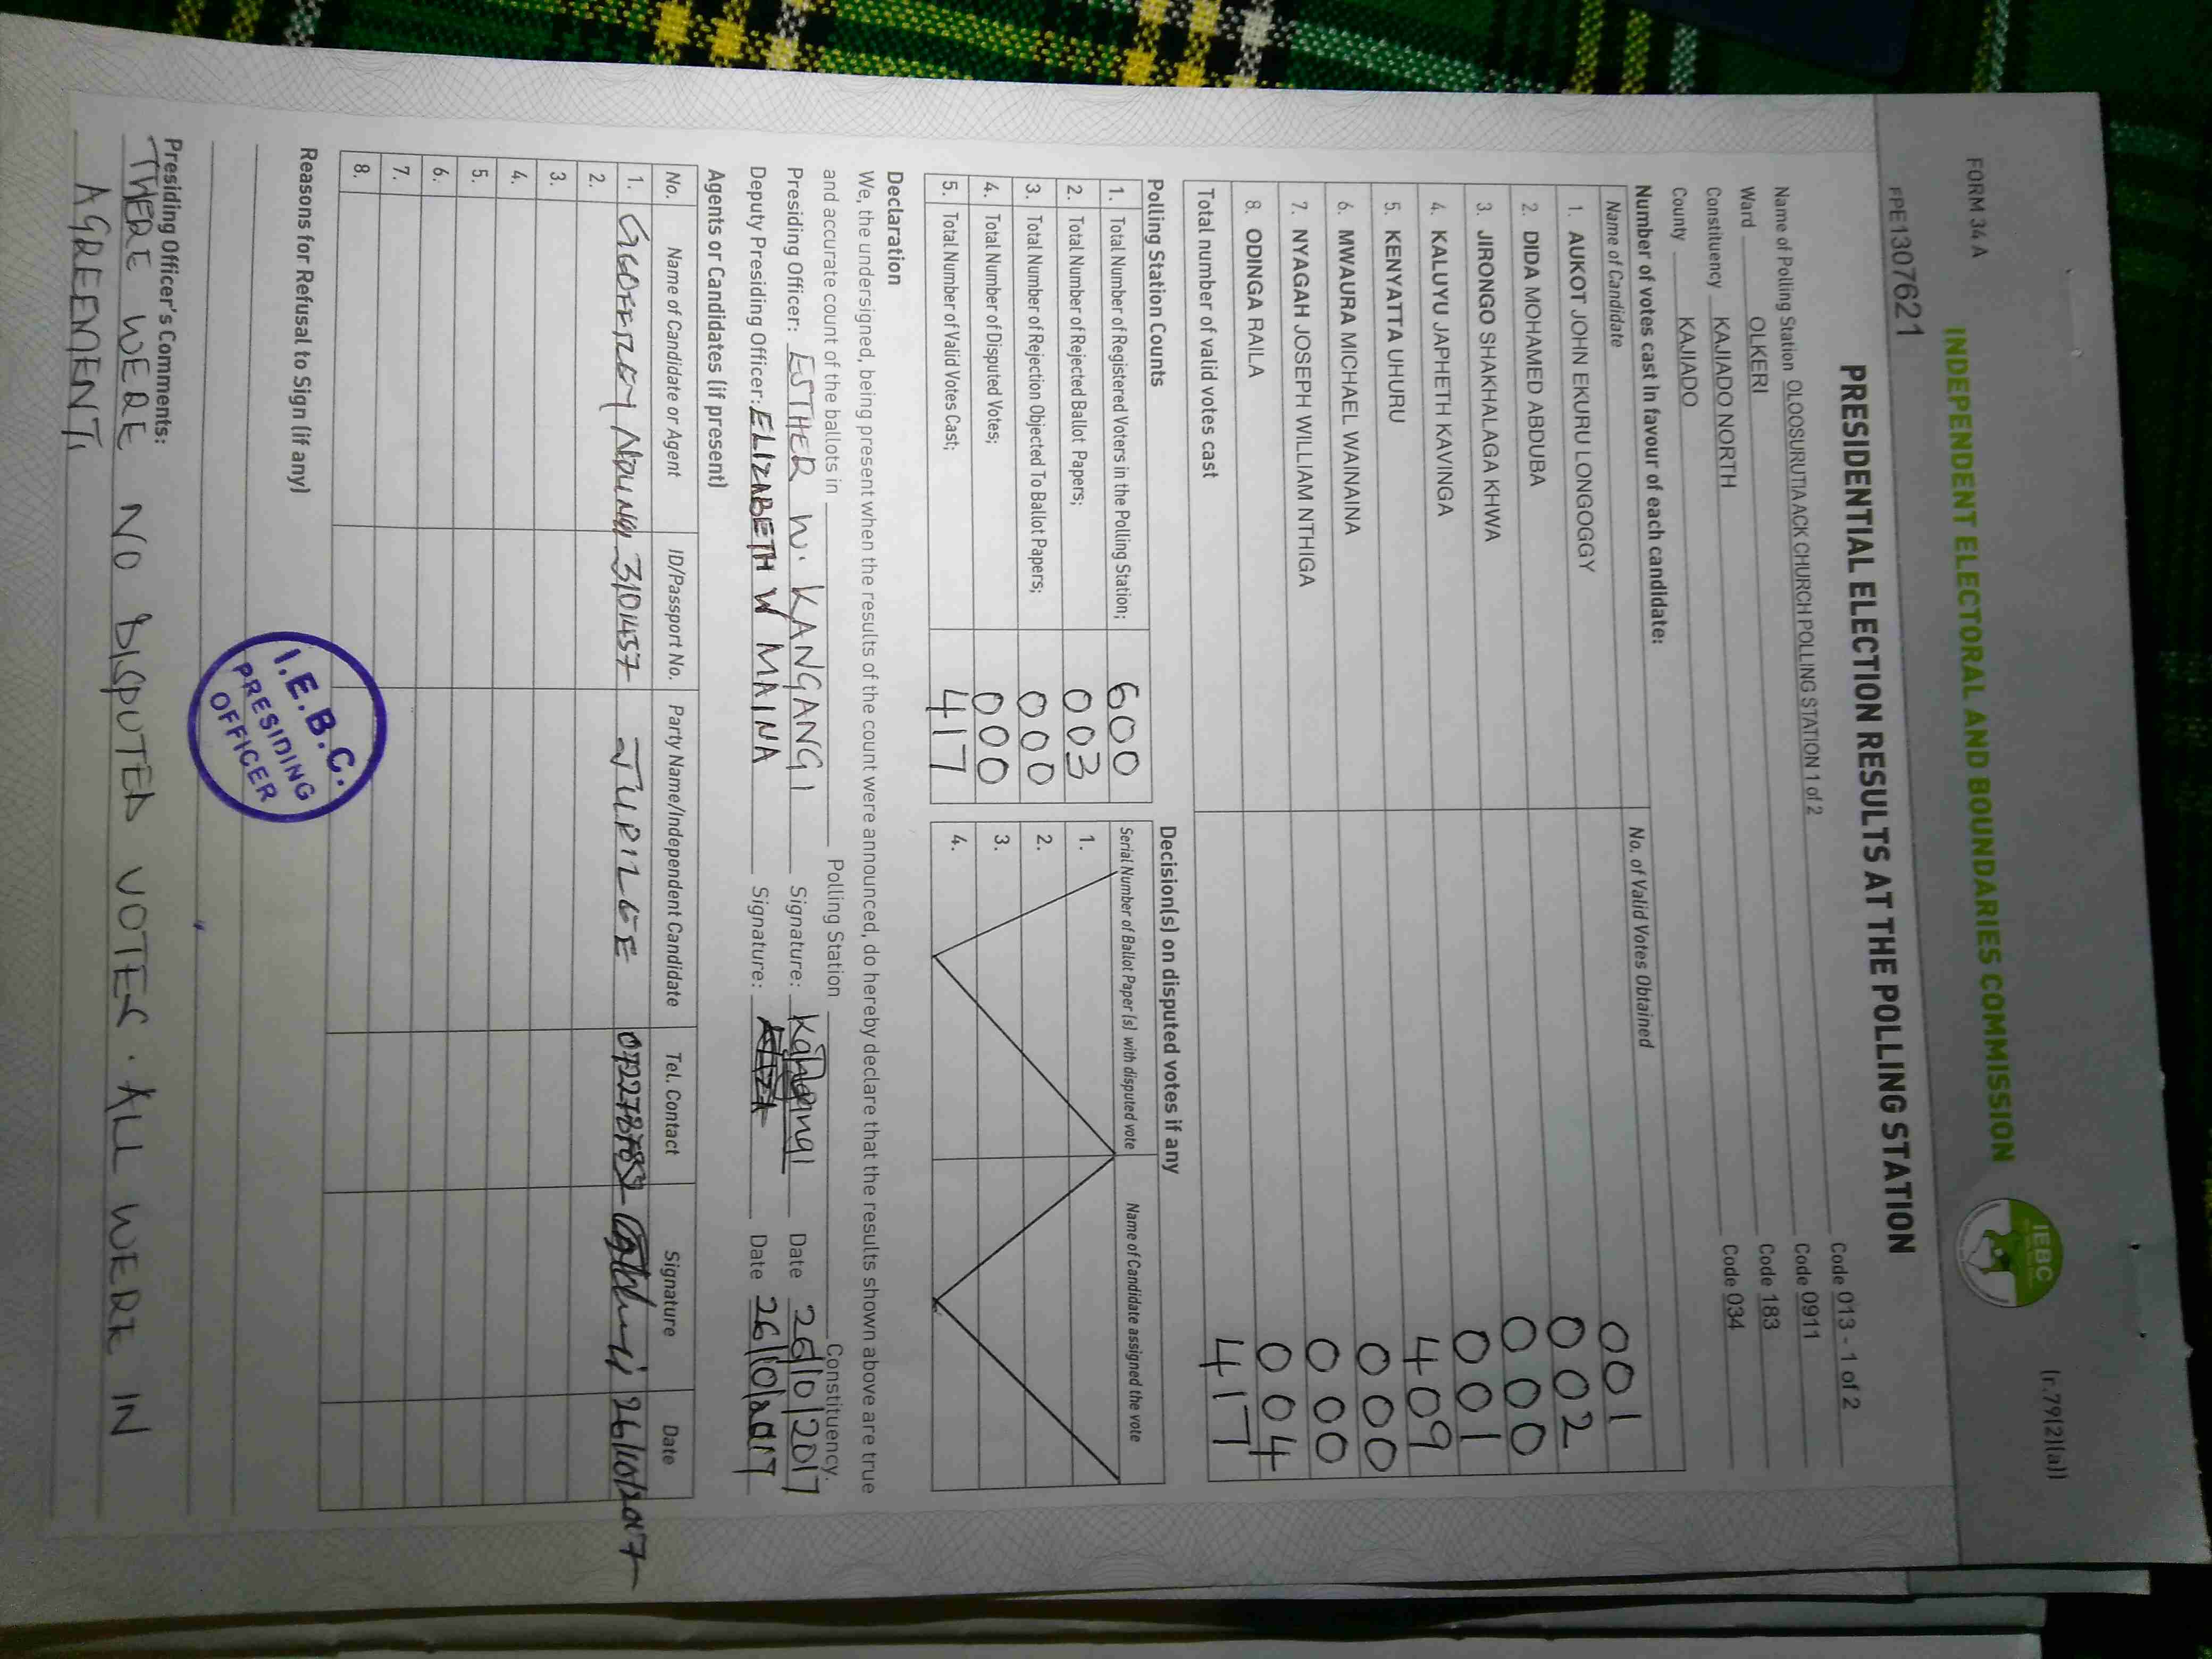 FORM 34 A
(r.79(2)(a))
INDEPENDENT ELECTORAL AND BOUNDARIES COMMISSION
IEBC
FPE1307621
PRESIDENTIAL ELECTION RESULTS AT THE POLLING STATION
Name of Polling Station OLOOSURUTIA ACK CHURCH POLLING STATION 1 of 2 Code 013 - 1 of 2
Ward OLKERI Code 0911
Constituency KAJIADO NORTH Code 183
County KAJIADO Code 034
Number of votes cast in favour of each candidate:
Name of Candidate No. of Valid Votes Obtained
1. AUKOT JOHN EKURU LONGOGGY 001
2. DIDA MOHAMED ABDUBA 002
3. JIRONGO SHAKHALAGA KHWA 000
4. KALUYU JAPHETH KAVINGA 001
5. KENYATTA UHURU 409
6. MWAURA MICHAEL WAINAINA 000
7. NYAGAH JOSEPH WILLIAM NTHIGA 000
8. ODINGA RAILA 004
Total number of valid votes cast 417
Polling Station Counts
1. Total Number of Registered Voters in the Polling Station; 600
2. Total Number of Rejected Ballot Papers; 003
3. Total Number of Rejection Objected To Ballot Papers; 000
4. Total Number of Disputed Votes; 000
5. Total Number of Valid Votes Cast; 417
Decision(s) on disputed votes if any
Serial Number of Ballot Paper (s) with disputed vote Name of Candidate assigned the vote
1.
2.
3.
4.
Declaration
We, the undersigned, being present when the results of the count were announced, do hereby declare that the results shown above are true
and accurate count of the ballots in Polling Station Constituency.
Presiding Officer: ESTHER W. KANGANGI Signature: Kangangi Date 26/10/2017
Deputy Presiding Officer: ELIZABETH W MAINA Signature: Date 26/10/2017
Agents or Candidates (if present)
No. Name of Candidate or Agent ID/Passport No. Party Name/Independent Candidate Tel. Contact Signature Date
1. JUBILEE 26/10/2017
2.
3.
4.
5.
6.
7.
8.
Reasons for Refusal to Sign (if any)
I.E.B.C.
PRESIDING
OFFICER
Presiding Officer's Comments:
THERE WERE NO DISPUTED VOTES. ALL WERE IN
AGREEMENT.